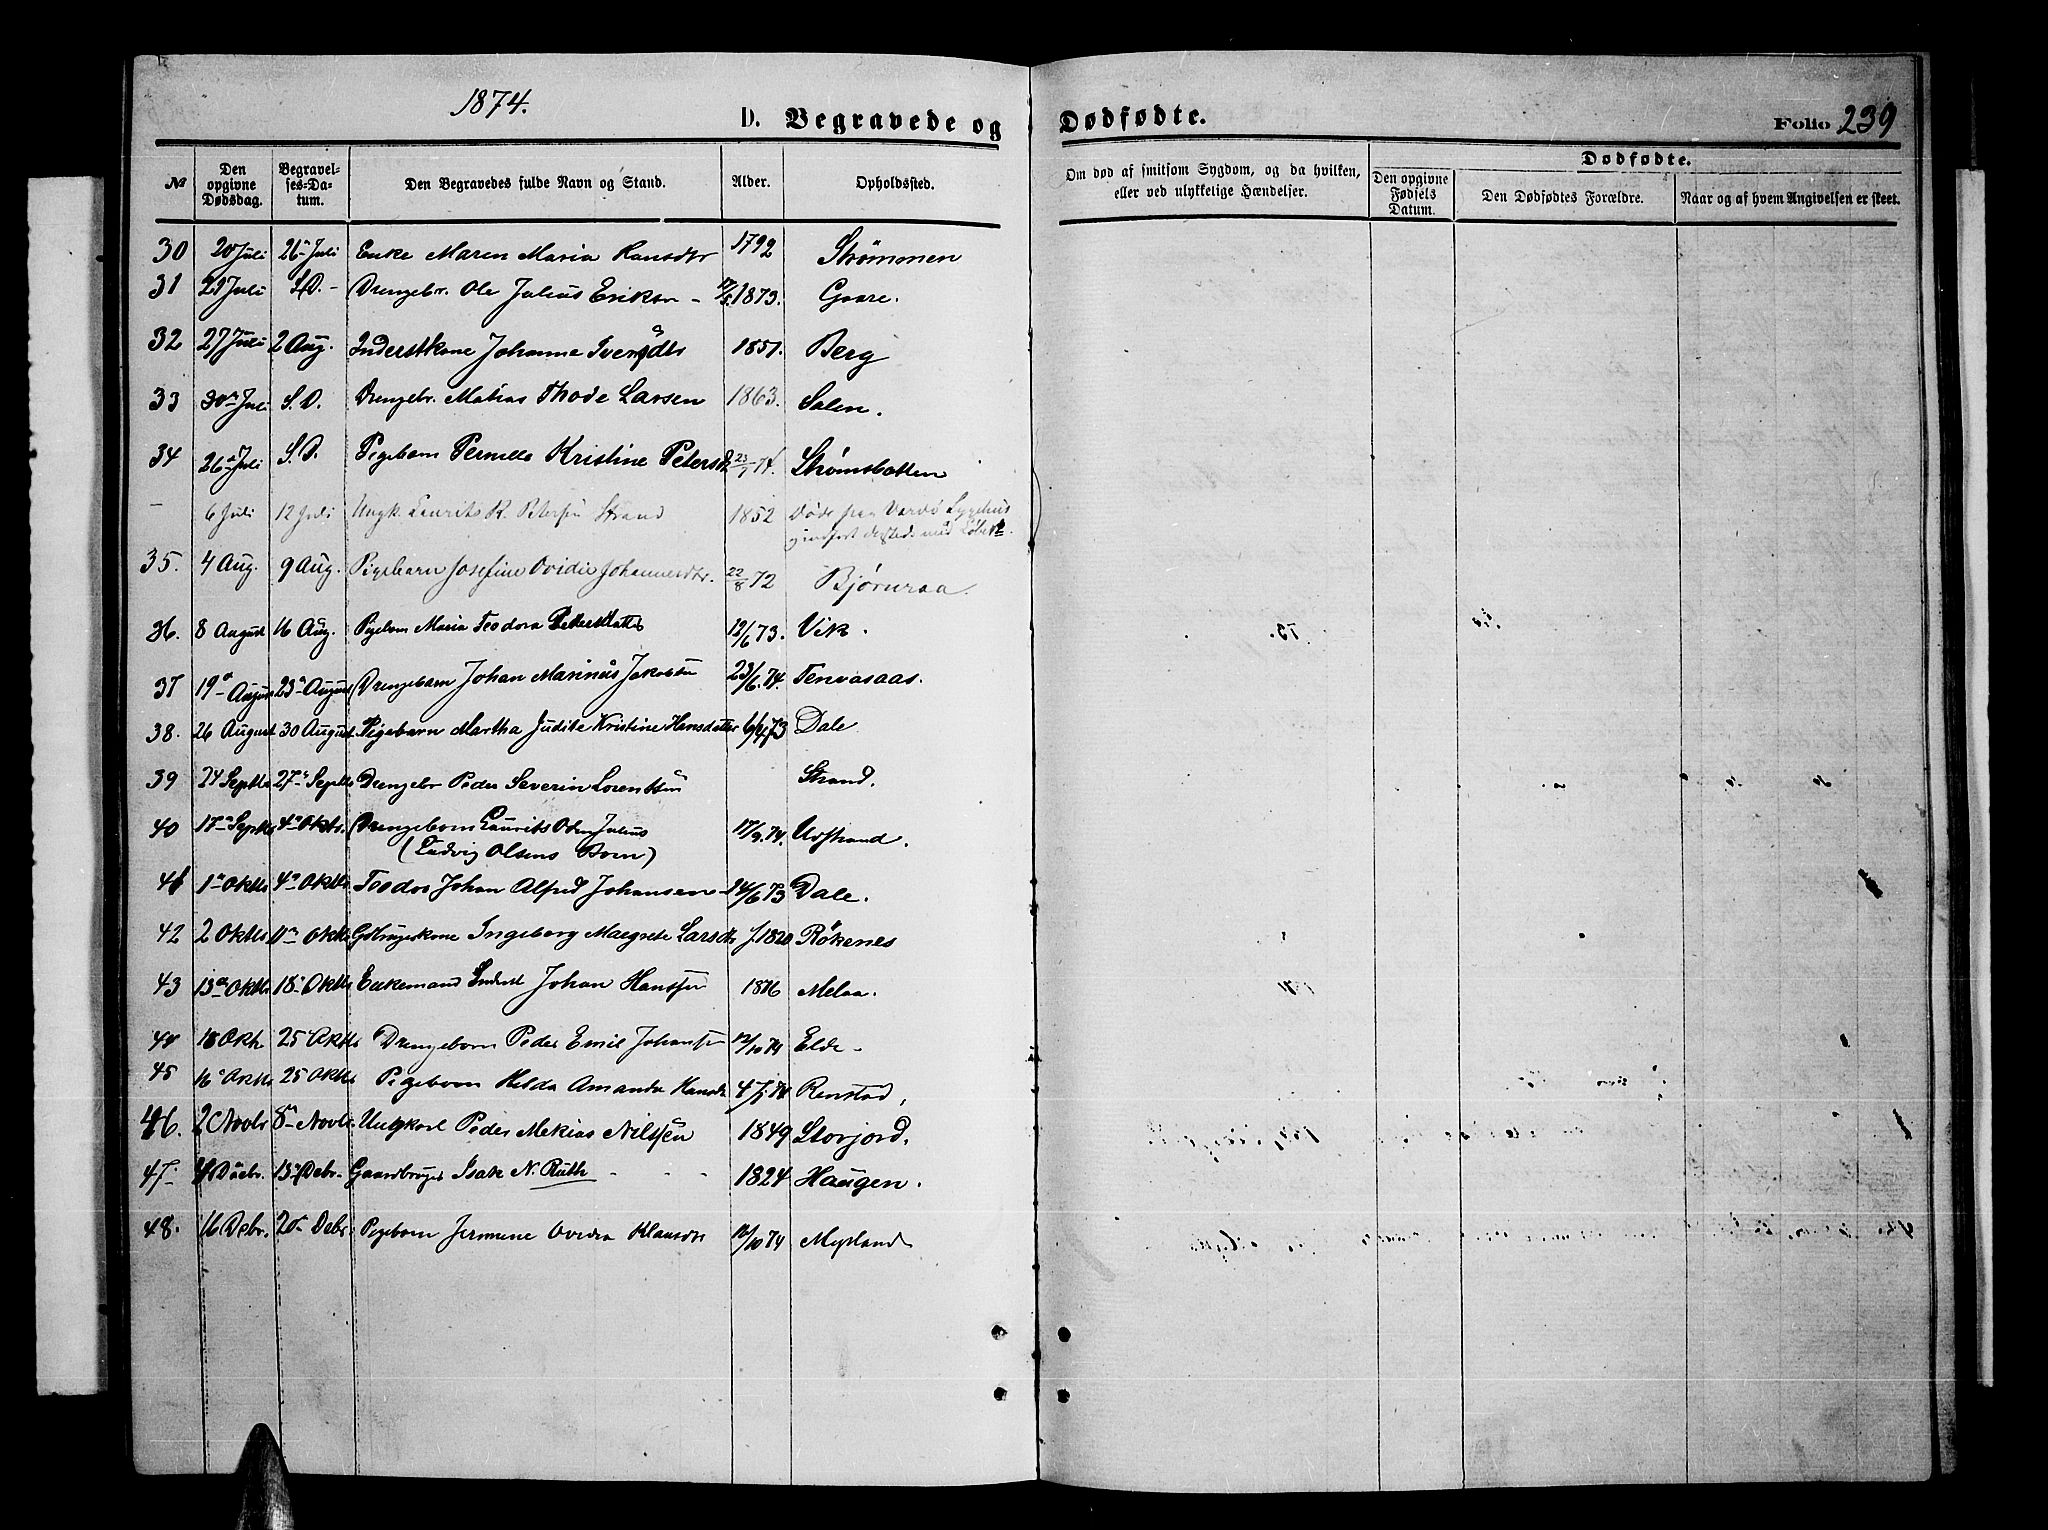 1874.
D. Begravede og Dødfødte.
Folio 239
№ Den opgivne Dødsdag. Begravelses-Datum. Den Begravedes fulde Navn og Stand. Alder. Opholdssted. Om død af smitsom Sygdom, og da hvilken, eller ved ulykkelige Hændelser. Dødfødte. Den opgivne Fødsels Datum. Den Dødfødtes Forældre. Naar og af hvem Angivelsen er skeet.
30 20 Juli 26 Juli Enke Maren Maria Hansdtr 1792 Strømmen
31 21 Juli S.D. Drengebr. Ole Julius Eriksen 1873. Gaare.
32 27 Juli 2 Aug. Inderstkone Johanna Iversdtr 1851. Berg
33 30 Juli S.D. Drengebr. Matias Thode Larsen 1863. Salen.
34 26 Juli S.D. Pigebarn Pernelle Kristine Petersd 23/1 74. Strømsbotten
– 6 Juli 12 Juli Ungk. Laurits R. Petersen Strand 1852 Døde paa Vardø Sygehus
35. 4 Aug. 9 Aug. Pigebarn Josefine Ovidie Johannesdtr. 22/8 72 Bjørnraa.
36. 8 August 16 Aug. Pigebarn Maria Teodora 12/6 73. Vik.
37 19 August 23 August Drengebarn Johan Marinus Jakobsen 23/6 74. Tenvasaas.
38. 26 August 30 August Pigebarn Martha Judite Kristine Hansdatter 6/4 73 Dale
39 24 Septbr 27 Septbr Drengebr Peder Severin Lorentsen Strand.
40 17 Septbr 4 Oktbr. Drengebarn Laurits Oden Julius 17/9.74. Uvstrand.
(Ludvig Olsens Barn)
41 1 Oktbr 4 Oktbr Teodor Johan Alfred Johansen 14/6 73 Dale.
42 2 Oktbr 11 Oktbr Gbrugerkone Ingeborg Margrete Larsdtr f. 1820 Røkenes
43 13 Oktbr 18 Oktbr Enkemand Inderst Johan Hanssen Melaa.
44 18 Okt. 25 Oktbr Drengebarn Peder Emil Johansen 12/10 74 Elde
45 16 Oktbr 25 Oktbr Pigebarn Helda Amanda Hansdtr Renstad,
46. 2 Novbr 8 Novbr Ungkarl Peder Mekias Nilssen 1849 Storjord.
47 4 Decbr. 13 Decbr. Gaardbruger Isak N. Ruth 1824 Haugen.
48. 16 Decbr. 20 Decbr Pigebarn Jermine Ovedia Klausdtr 12/10 74 Myrland